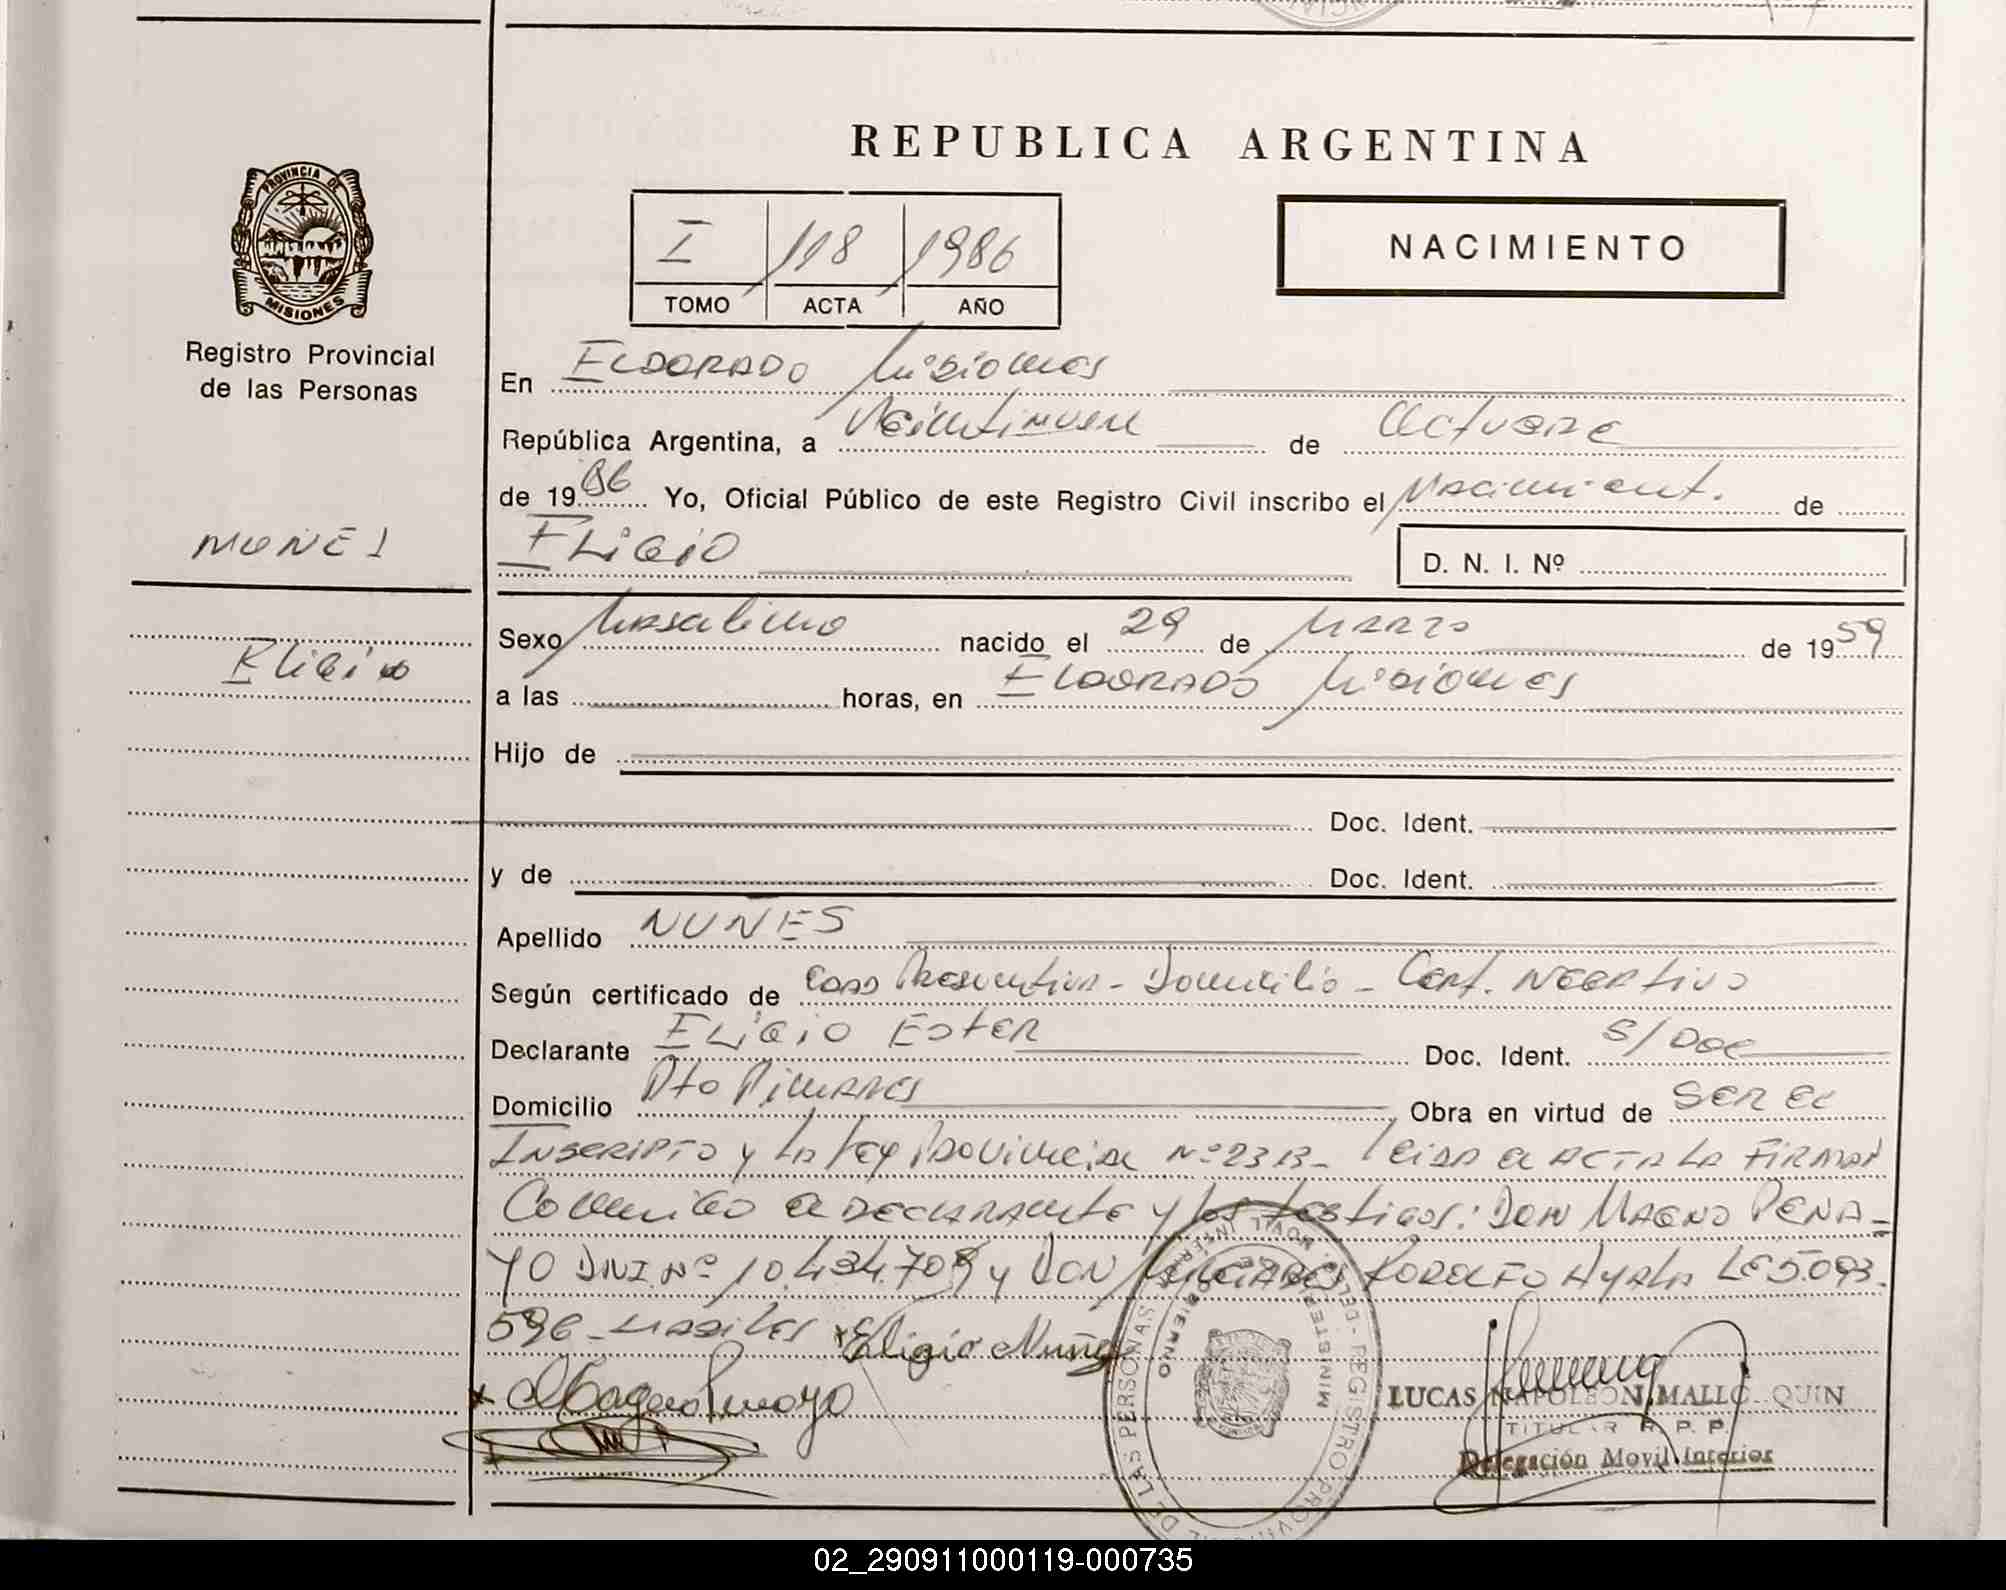 REPUBLICA ARGENTINA
PROVINCIA DE
MISIONES
Registro Provincial
de las Personas
I 118 1986
TOMO ACTA AÑO
NACIMIENTO
En Eldorado Misiones
República Argentina, a Veintinueve de Octubre
de 1986 Yo, Oficial Público de este Registro Civil inscribo el Nacimient. de
Eligio
D. N. I. Nº
NUNES
Eligio
Sexo Masculino nacido el 29 de Marzo de 1959
a las horas, en Eldorado Misiones
Hijo de
Doc. Ident.
y de Doc. Ident.
Apellido NUNES
Según certificado de Domicilio - Cert. Negativo
Declarante Eligio Ester Doc. Ident. S/Doc
Domicilio Pto Pinares Obra en virtud de Ser el
Inscripto y la Ley Provincial Nº Leida el Acta la Firman
Conmigo el declarante y los testigos: Don Magno Pena-
yo DNI. Nº 10.434.709 y Don Rodolfo Ayala LE 5.093.
596
Eligio Nuñez
LUCAS NAPOLEON MALLO QUIN
TITULAR R. P. P.
Delegación Movil Interior
DE LAS PERSONAS
REGISTRO PROVINCIAL
MINISTERIO DE GOBIERNO
02_290911000119-000735